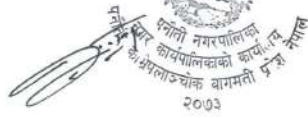 पनौती नगरपालिका
नगर कार्यपालिकाको कार्यालय
काभ्रेपलाञ्चोक बागमती प्रदेश नेपाल
२०७३